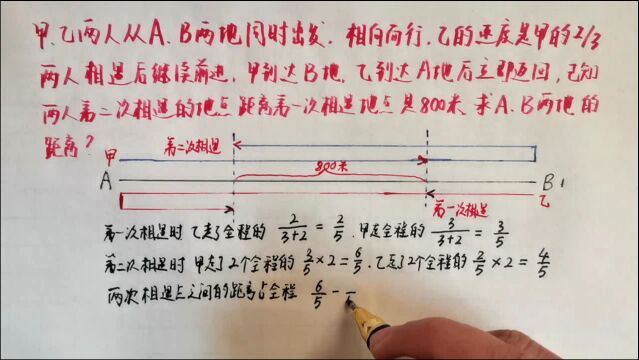 甲、乙两人从A、B两地同时出发，相向而行，乙的速度是甲的2/3
两人相遇后继续前进，甲到达B地，乙到达A地后立即返回，已知
两人第二次相遇的地点距离第一次相遇地点是800米 求A、B两地的
距离？
第二次相遇
甲
800米
A
B
乙
第一次相遇
第一次相遇时 乙走了全程的 2/(3+2) = 2/5 . 甲走全程的 3/(3+2) = 3/5
第二次相遇时 甲走了2个全程的 3/5 × 2 = 6/5 . 乙走了2个全程的 2/5 × 2 = 4/5
两次相遇点之间的距离占全程 6/5 -